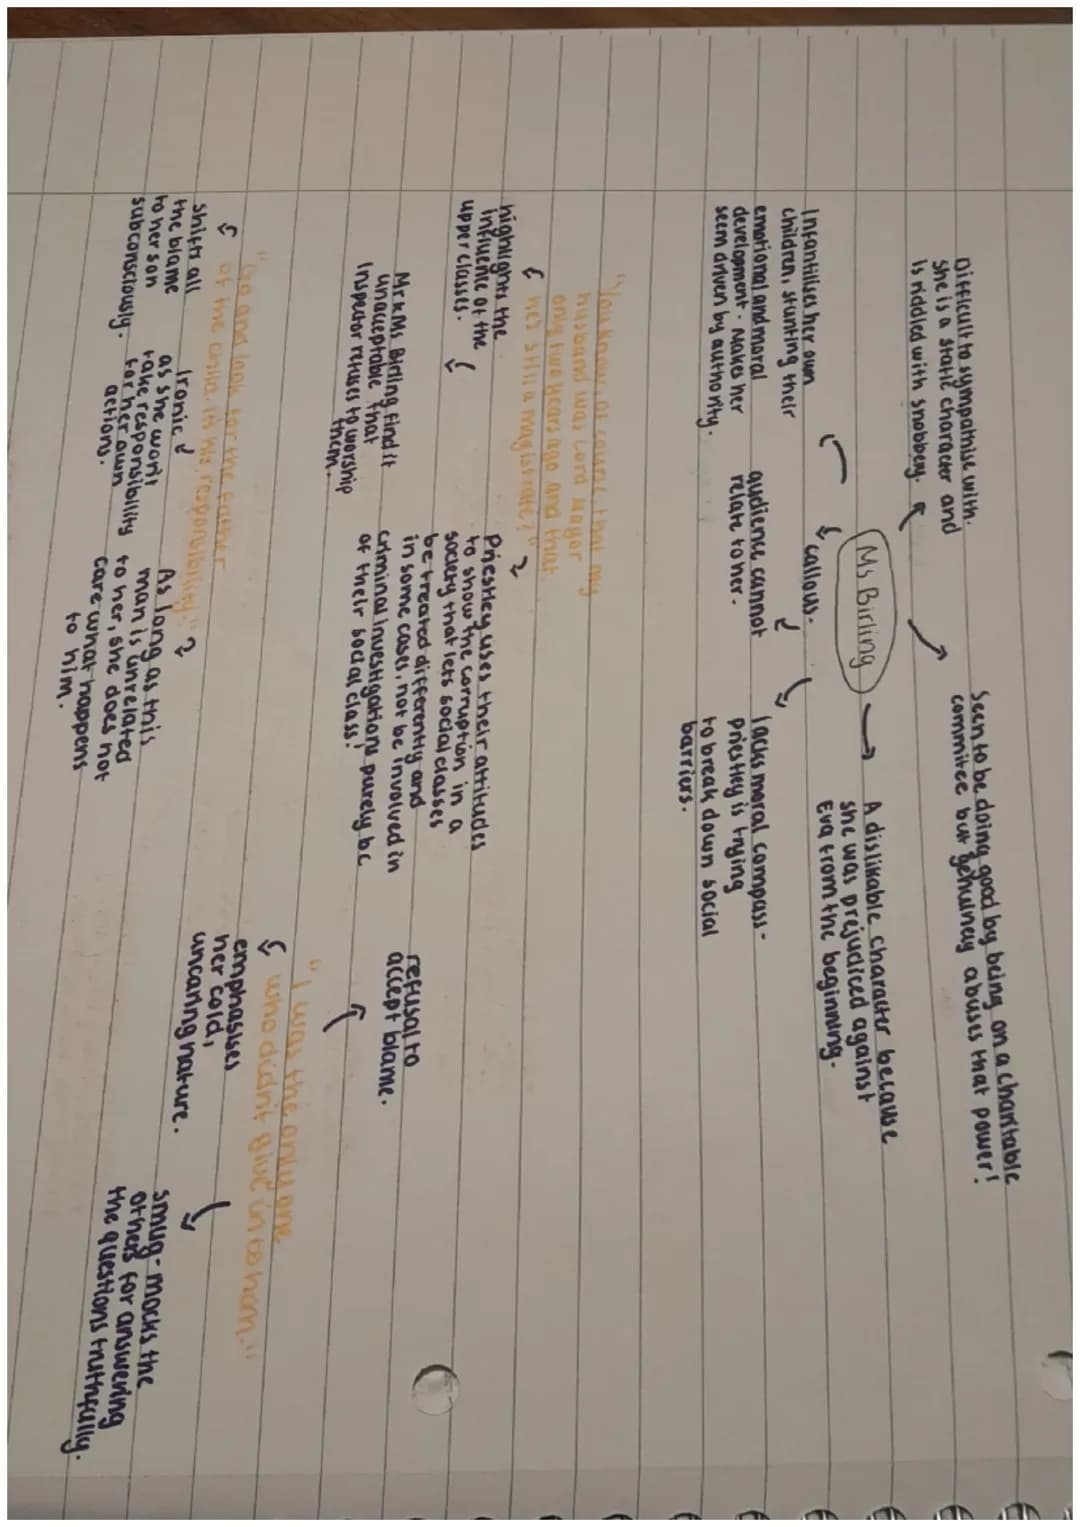 Difficult to sympathise with.
She is a static character and
is riddled with snobbery.
Seen to be doing good by being on a charitable
commitee but genuinely abuses that power!
Ms Birling
A dislikable character because
she was prejudiced against
Eva from the beginning.
callous.
Infantilises her own
children, stunting their
emotional and moral
development. Makes her
seem driven by authority.
audience cannot
relate to her.
lacks moral compass -
priestley is trying
to break down social
barriers.
"You know, of course, that my
husband was Lord Mayor
only two years ago and that
he's still a magistrate?"
highlights the
influence of the
upper classes.
Mr & Ms Birling find it
unacceptable that
Inspector refuses to worship
them.
Priestley uses their attitudes
to show the corruption in a
society that lets social classes
be treated differently and
in some cases, not be involved in
criminal investigations purely bc
of their social class!
refusal to
accept blame.
"I was the only one
who didn't give in to him."
emphasises
her cold,
uncaring nature.
smug - mocks the
others for answering
the questions truthfully.
"Go and look for the father
of the child, it's his responsibility."
shifts all
the blame
to her son
subconsciously.
Ironic
as she won't
take responsibility
for her own
actions.
As long as this
man is unrelated
to her, she does not
care what happens
to him.